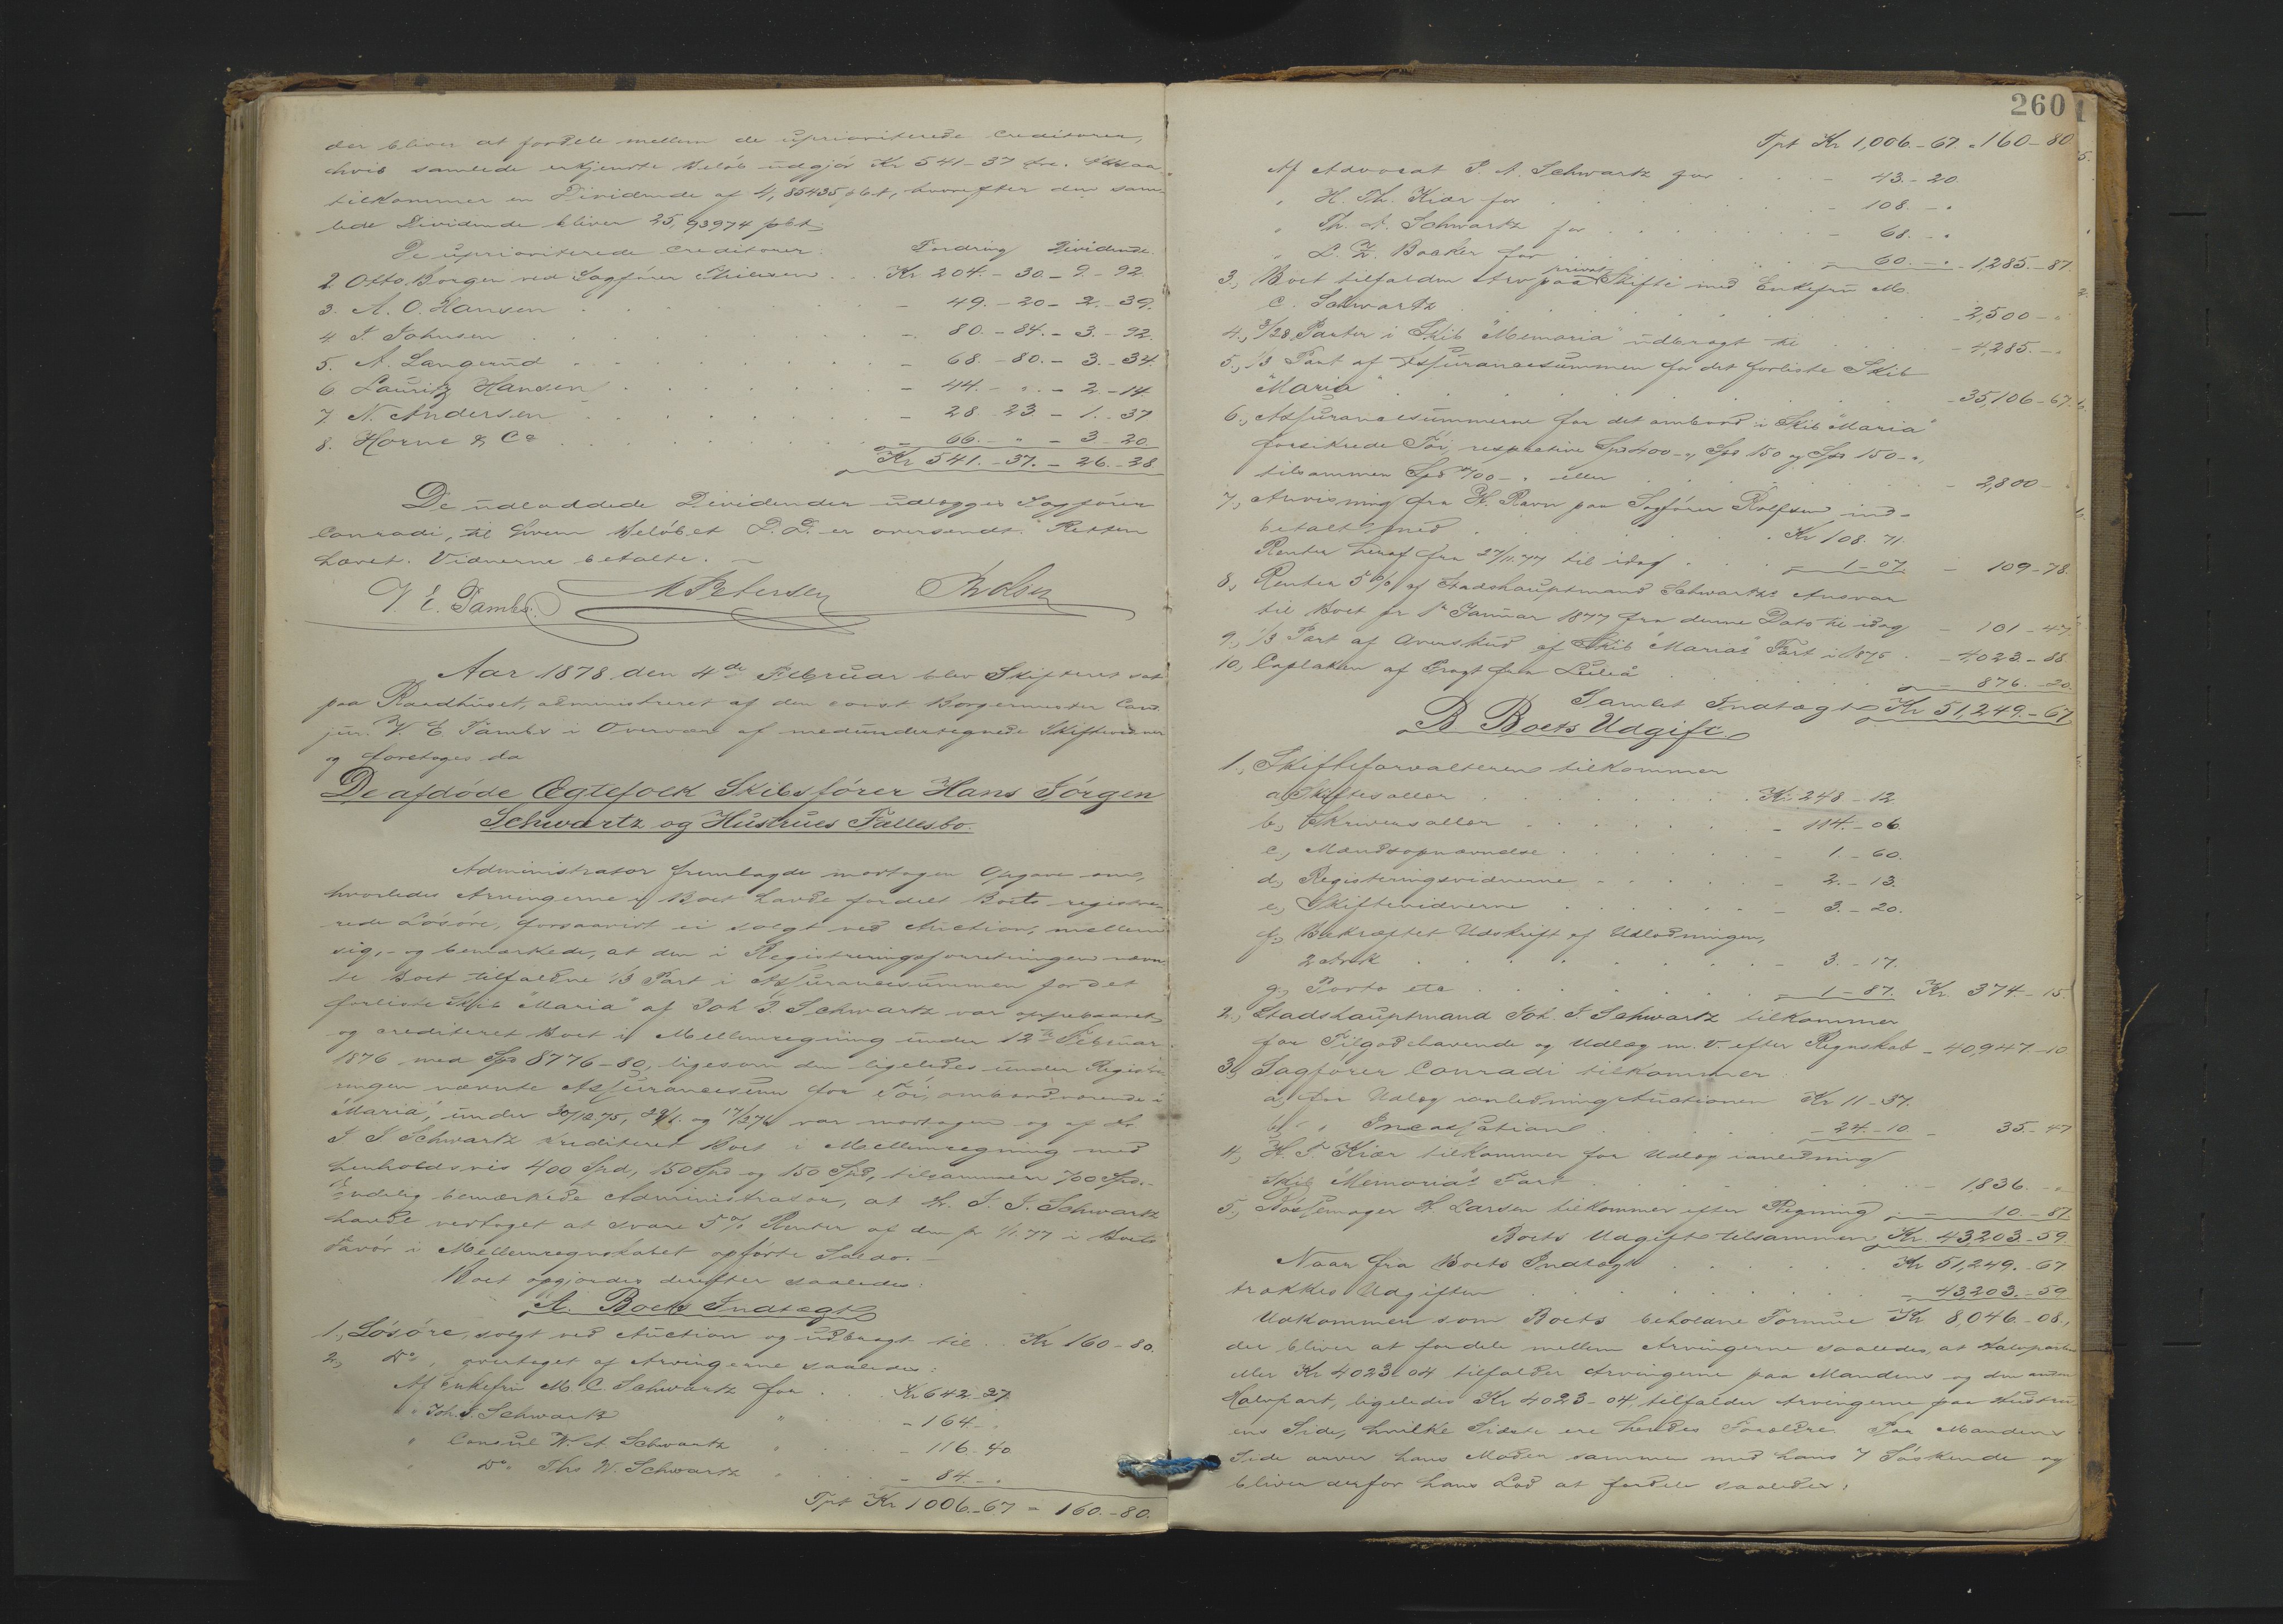 der bliver at fordele mellem de uprioriterede Creditorer,
hvis samlede erkjendte Beløb udgjør Kr 541-37 Øre. Disse
tilkommer en Dividende af 4,85435 pCt, hvorefter den sam-
lede Dividende bliver 25,93974 pCt
De uprioriterede Creditorer. Fordring Dividende.
2. Otto Borger ved Sagfører . . Kr 204. - 30 - 9. - 92.
3. A. O. Hansen . . . - 49. - 20 - 2. - 39.
4. J. Johnsen . . . - 80. - 84. - 3. - 92.
5. A. Langerud . . . - 68 - 80. - 3. - 34.
6 Lauritz Hansen . . . - 44. - " - 2 - 14
7. N. Andersen . . . - 28 - 23 - 1. - 37
8. Horne & Co . . . - 66. - " - 3 - 20
Kr 541. - 37. - 26. - 28
De udloddede Dividender udlægges Sagfører
Conradi, til hvem Beløbet D. D. er oversendt. Retten
hævet. Vidnerne betalte. -
V. E. Tambs. M Petersen
Aar 1878 den 4de Februar blev Skifteret sat
paa Raadhuset, administreret af den const Borgermester Cand
jur. V. E. Tambs i Overvær af medundertegnede Skiftevidner
og foretoges da
De afdøde Ægtefolk Skibsfører Hans Jørgen
Schwartz og Hustrues Fællesbo.
Administrator fremlagde modtagen Opgave om,
hvorledes Arvingerne i Boet havde fordelt Boets registre-
rede Løsøre, forsaavidt ei solgt ved Auction, mellem
sig, - og bemærkede, at den i Registreringsforretningen nævn-
te Boet tilfaldne 1/3 Part i Assurancesummen for det
forliste Skib "Maria" af Joh J. Schwartz var oppebaaret
og crediteret Boet i Mellemregning under 12te Februar
1876 med Spd 8776-80, ligesom den ligeledes under Registre-
ringen nævnte Assurancesum for Tøi, ombordværende i
"Maria", under 30/12 75, 29/1. og 17/2 76 var modtagen og af
J J. Schwartz krediteret Boet i Mellemregning med
henholdsvis 400 Spd, 150 Spd og 150 Spd, tilsammen 700 Spd. -
Endelig bemærkede Administrator, at Hr. J. J. Schwartz
havde vedtaget at svare 5% Renter af den pr 1/1 77 i Boets
Favør i Mellemregnskabet opførte Saldo. -
Boet opgjordes derefter saaledes:
A. Boets Indtægt
1., Løsøre, solgt ved Auction og udbragt til . . Kr 160 - 80.
2., Do, overtaget af Arvingerne saaledes:
Af Enkefru M. C. Schwartz for . . . Kr 642 - 27
" Joh. J. Schwartz " . . - 164 - "
" Consul W. A. Schwartz " . . - 116 - 40
" Do Ths W. Schwartz " . . - 84 - "
Tpt Kr 1006. - 67 - 160. - 80.
260
Tpt Kr 1,006. - 67 - 160 - 80
Af Advocat P. A. Schwartz for . . . - 43. - 20
" H. Th. Kiær for . . . - 108. - "
" Th. J. Schwartz for . . . - 68. - "
" L. Z. Backer for . . . - 60. - " - 1,285. - 87
3., Boet tilfalden Arv paa privat Skifte med Enkefru M.
C. Schwartz . . . - 2,500 - "
4., 3/28 Parter i Skib "Memoria" udbragt til . . - 4,285. - "
5., 1/3 Part af Assurancesummen for det forliste Skib
"Maria" . . . - 35,106 - 67.
6., Assurancesummerne for det ombord i Skib "Maria"
forsikrede Tøi, respective Spd 400 - ", Spd 150 og Spd 150 - ",
tilsammen Spd 700 - " eller . . . - 2,800 - "
7., Anvisning fra H. Ravn paa Sagfører Rolfsen ind-
betalt med . . . Kr 108. 71.
Renter heraf fra 27/11. 77 til idag . . - 1 - 07. - 109 - 78.
8., Renter 5% af Stadshauptmand Schwartz's Ansvar
til Boet pr 1te Januar 1877 fra denne Dato til idag - 101 - 47.
9., 1/3 Part af Overskud af Skib "Maria's" Fart i 1875 . - 4,023. - 88
10., Caplaken af Fragt fra Luleå . . . - 876. - 20.
Samlet Indtægt Kr 51,249. - 67
B. Boets Udgift.
1., Skifteforvalteren tilkommer
a, Skiftesallær . . . Kr 248 - 12
b, Skriversallær . . . - 114. - 06.
c, Mændsopnævnelse . . . - 1. - 60.
d, Registreringsvidnerne . . . - 2. - 13.
e, Skiftevidnerne . . . - 3. - 20.
f, Bekræftet Udskrift af Udlodningen,
2 Ark . . . - 3. - 17.
g, Porto etc . . . - 1 - 87. Kr. 374 - 15.
2., Stadshauptmand Joh. J. Schwartz tilkommer
for Tilgodehavende og Udlæg m. V. efter Regnskab - 40,947. - 10
3., Sagfører Conradi tilkommer
a, for Udlæg ianledning Auctionen Kr 11 - 37.
b, " Incassation . . . - 24. - 10 - 35. - 47
4., H. T. Kiær tilkommer for Udlæg ianledning
Skib "Memoria's" Fart . . . - 1,836. - "
5., H. Larsen tilkommer efter Regning . - 10. - 87
Boets Udgifter tilsammen Kr. 43,203. - 59.
Naar fra Boets Indtægt . . . Kr 51,249. - 67
trækkes Udgiften . . . - 43,203. - 59
Udkommer som Boets beholdne Formue Kr 8,046. - 08,
der bliver at fordele mellem Arvingerne saaledes, at Halvparten
eller Kr 4023-04 tilfalder Arvingerne paa Mandens og den anden
Halvpart, ligeledes Kr 4023-04, tilfalder Arvingerne paa Hustru-
ens Side, hvilke Sidste ere hendes Forældre. Paa Mandens
Side arver hans Moder sammen med hans 7 Søskende og
bliver derfor hans Lod at fordele saaledes: